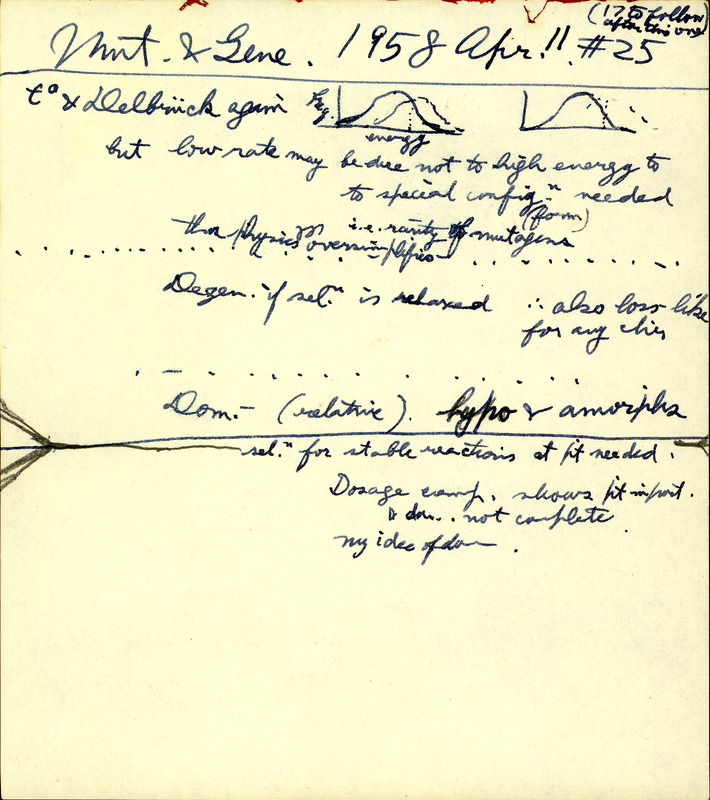 (17 to follow
after this one)
Mut. & Gene. 1958 Apr. 11 #25
t° & Delbrück again
freq.
energy
but low rate may be due not to high energy to
to special config.n needed
(form)
i.e. rarity of mutagens
physics oversimplifies
Degen. if sel.n is relaxed ∴ also loss like
for any
Dom. – (relative). hypo & amorphs
sel.n for stable reactions at pt needed.
Dosage comp. shows pt import.
& dom. not complete
my idea of dom